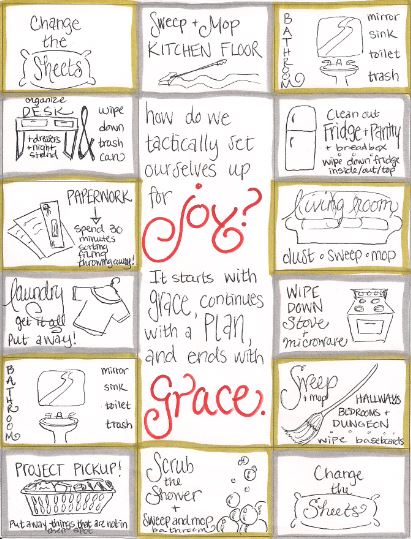 Change
the
Sheets
Sweep + Mop
KITCHEN FLOOR
BATHROOM
mirror
sink
toilet
trash
organize
DESK
+ drawers
+ night
stand
wipe
down
trash
can
how do we
tactically set
ourselves up
for
joy?
It starts with
grace, continues
with a PLAN,
and ends with
Grace.
Clean out
Fridge + Pantry
+ breadbox
• wipe down fridge
inside/out/top
PAPERWORK
spend 30
minutes
sorting
filing
throwing away!
living room
dust • sweep • mop
laundry
get it all
Put away!
WIPE
DOWN
Stove
+
microwave
BATHROOM
mirror
sink
toilet
trash
Sweep
+ mop
HALLWAYS
BEDROOMS +
DUNGEON
wipe baseboards
PROJECT PICKUP!
Put away things that are not in
Scrub
the
Shower
+
Sweep and mop
bathroom
Change
the
Sheets